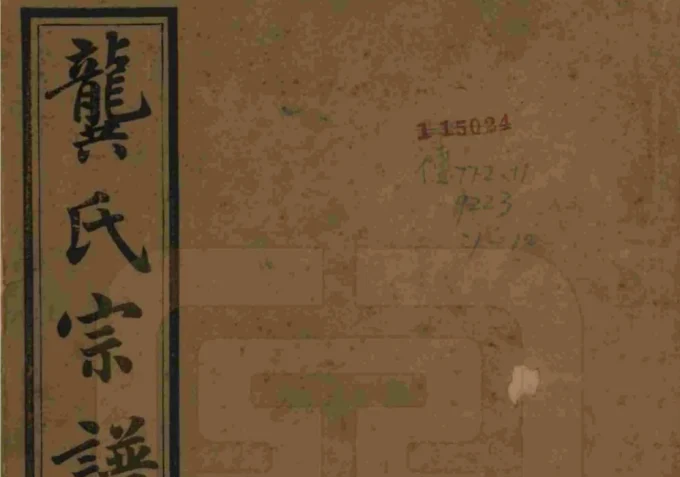 龔氏宗譜
115024
772.11
9223
1-10